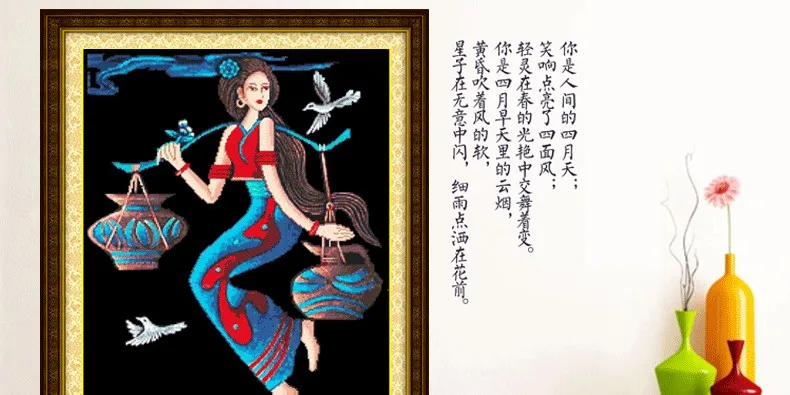 你是人间的四月天；
笑响点亮了四面风；
轻灵在春的光艳中交舞着变。
你是四月早天里的云烟，
黄昏吹着风的软，
星子在无意中闪，细雨点洒在花前。